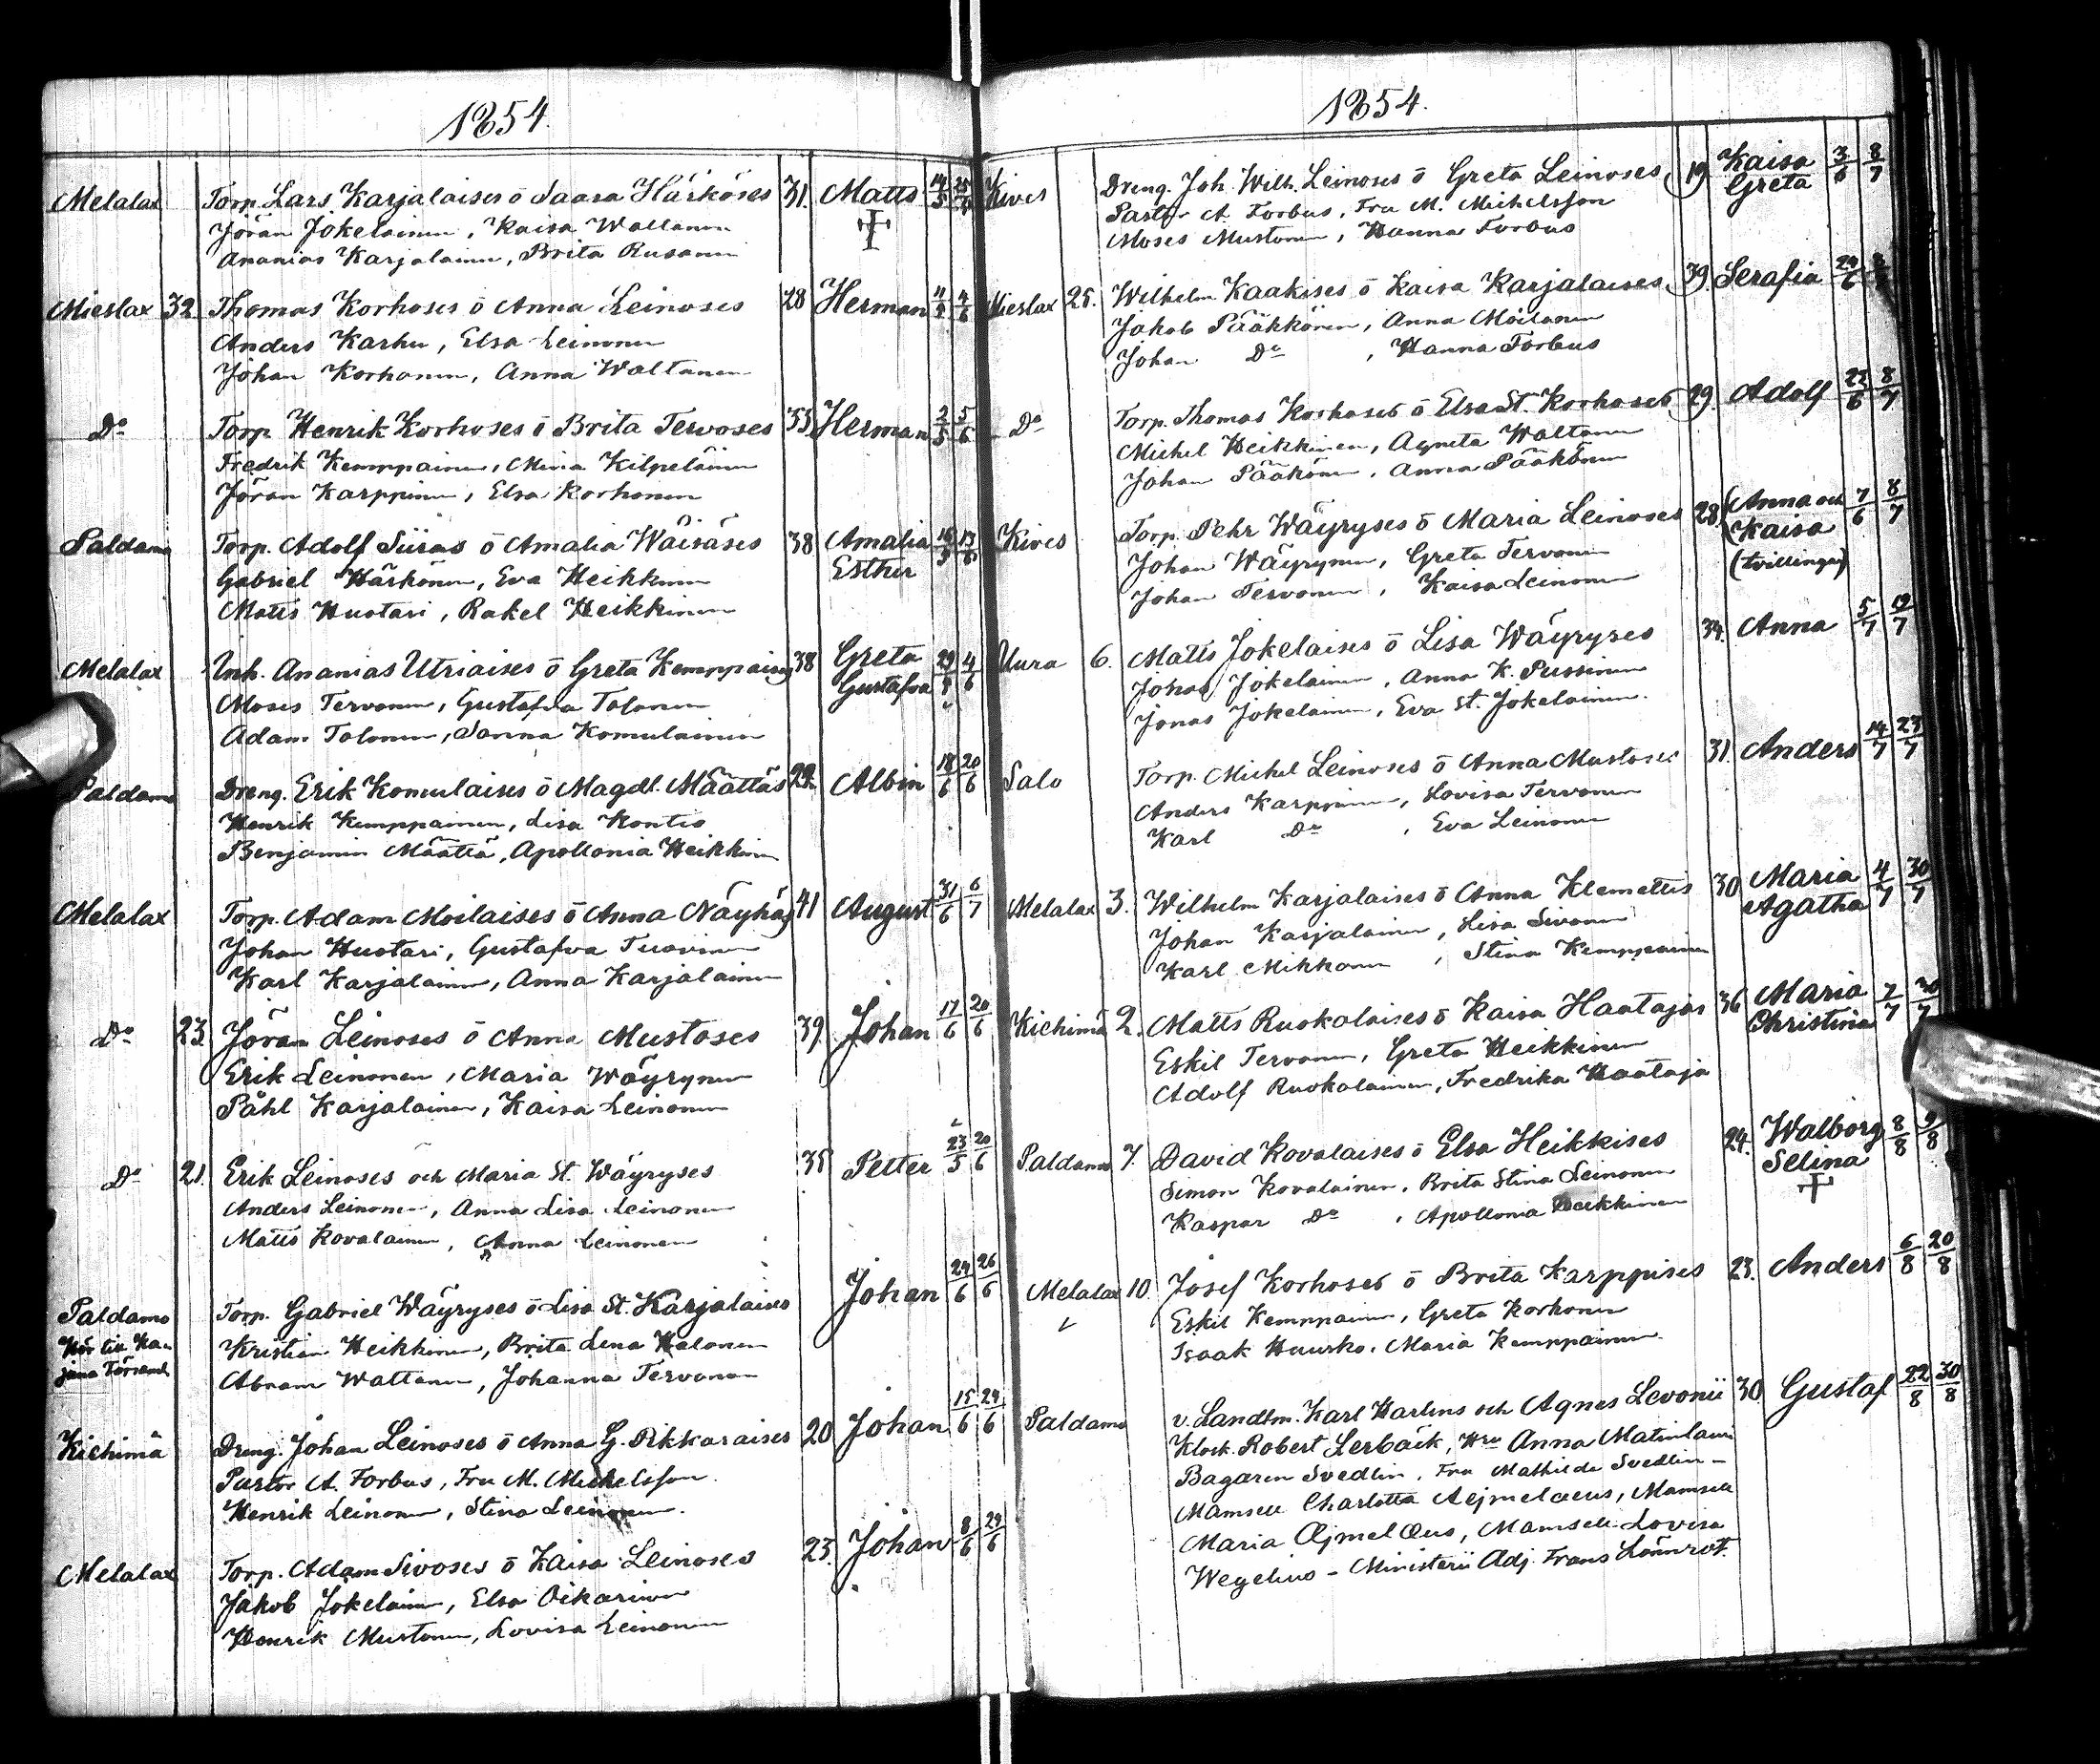 1854.
Melalax Torp. Lars Karjalaises ō Saara Härköses 31. Matts 14/5 25/5
Jöran Jokelainen, Kaisa Waltanen
Ananias Karjalainen, Brita Rusanen
Mieslax 32. Thomas Korhoses ō Anna Leinoses 28 Herman 4/6
Anders Karhu, Elsa Leinonen
Johan Korhonen, Anna Waltanen
Do Torp Henrik Korhoses ō Brita Tervoses 33 Herman 2/5 5/6
Fredrik Kemppainen, Mina Kilpeläinen
Jöran Karppinen, Elsa Korhonen
Paldamo Torp. Adolf Siiras ō Amalia Wäisäses 38 Amalia 16/5 13/6
Gabriel Härkönen, Eva Heikkinen Esther
Matts Huotari, Rakel Heikkinen
Melalax Inh. Ananias Utriaises ō Greta Kemppaises 38 Greta 4/6
Moses Tervonen, Gustafva Tolonen Gustafva
Adam Tolonen, Sanna Komulainen
Paldamo Dreng. Erik Komulaises ō Magdl. Määttäs 22. Albin 18/6 20/6
Henrik Kemppainen, Lisa Kontio
Benjamin Määttä, Apollonia Heikkinen
Melalax Torp. Adam Moilaises ō Anna Näyhäs 41 August 31/6 6/7
Johan Huotari, Gustafva Tuovinen
Karl Karjalainen, Anna Karjalainen
Do 23. Jöran Leinoses ō Anna Mustoses 39. Johan 17/6 20/6
Erik Leinonen, Maria Wäyrynen
Påhl Karjalainen, Kaisa Leinonen
Do 21. Erik Leinoses och Maria St. Wäyryses 35 Petter 23/5 20/6
Anders Leinonen, Anna Lisa Leinonen
Matts Kovalainen, Anna Leinonen
Paldamo Torp. Gabriel Wäyryses ō Lisa St. Karjalaises Johan 24/6 26/6
Hör till Ka- Kristian Heikkinen, Brita Lena Halonen
jana Församl. Abram Wattanen, Johanna Tervonen
Kiehimä Dreng. Johan Leinoses ō Anna G. Pikkaraises 20 Johan 15/6 24/6
Pastor A. Forbus, Fru M. Michelsson.
Henrik Leinonen, Stina Leinonen.
Melalax Torp. Adam Sivoses ō Kaisa Leinoses 23. Johan 8/6 24/6
Jakob Jokelainen, Elsa Oikarinen
Henrik Mustonen, Lovisa Leinonen
1854.
Kives Dreng. Joh. Wilh. Leinoses ō Greta Leinoses 19 Kaisa 3/6 8/7
Pastor A. Forbus, Fru M. Michelsson Greta
Moses Mustonen, Hanna Forbus
Mieslax 25. Wilhelm Kaakises ō Kaisa Karjalaises 39. Serafia 24/6
Jakob Pääkkönen, Anna Moilanen
Johan Do, Hanna Forbus
Do Torp. Thomas Korhoses ō Elsa St. Korhoses 29. Adolf 23/6 8/7
Michel Heikkinen, Agneta Waltanen
Johan Pääkönen, Anna Pääkönen
Kives Torp. Pehr Wäyryses ō Maria Leinoses 28. Anna och 7/6 8/7
Johan Wäyrynen, Greta Tervonen Kaisa
Johan Tervonen, Kaisa Leinonen (tvillingar)
Uura 6. Matts Jokelaises ō Lisa Wäyryses 34. Anna 5/7 19/7
Johan Jokelainen, Anna K. Pussinen
Jonas Jokelainen, Eva St. Jokelainen.
Salo Torp. Michel Leinoses ō Anna Mustoses 31. Anders 14/7 23/7
Anders Karppinen, Lovisa Tervonen
Karl Do, Eva Leinonen
Melalax 3. Wilhelm Karjalaises ō Anna Klemettis 30 Maria 4/7 30/7
Johan Karjalainen, Lisa Sivonen Agatha
Karl Mikkonen, Stina Kemppainen
Kiehimä 2. Matts Ruokolaises ō Kaisa Haatajas 36 Maria 7/7 30/7
Eskil Tervonen, Greta Heikkinen Christina
Adolf Ruokolainen, Fredrika Haataja
Paldamo 7. David Kovalaises ō Elsa Heikkises 24. Walborg 8/8 9/8
Simon Kovalainen, Brita Stina Leinonen Selina
Kaspar Do, Apollonia Heikkinen
Melalax 10. Josef Korhoses ō Brita Karppises 23. Anders 6/8 20/8
Eskil Kemppainen, Greta Korhonen
Isaak Huusko, Maria Kemppainen.
Paldamo v. Landtm. Karl Harlins och Agnes Levonii 30 Gustaf 22/8 30/8
Klock. Robert Lerbäck, Hru Anna Matinlauri
Bagaren Svedlin, Fru Mathilda Svedlin -
Mamsell Charlotta Aejmelaeus, Mamsell
Maria Æjmelæus, Mamsell Lovisa
Wegelius - Ministerii Adj. Frans Lönnrot.